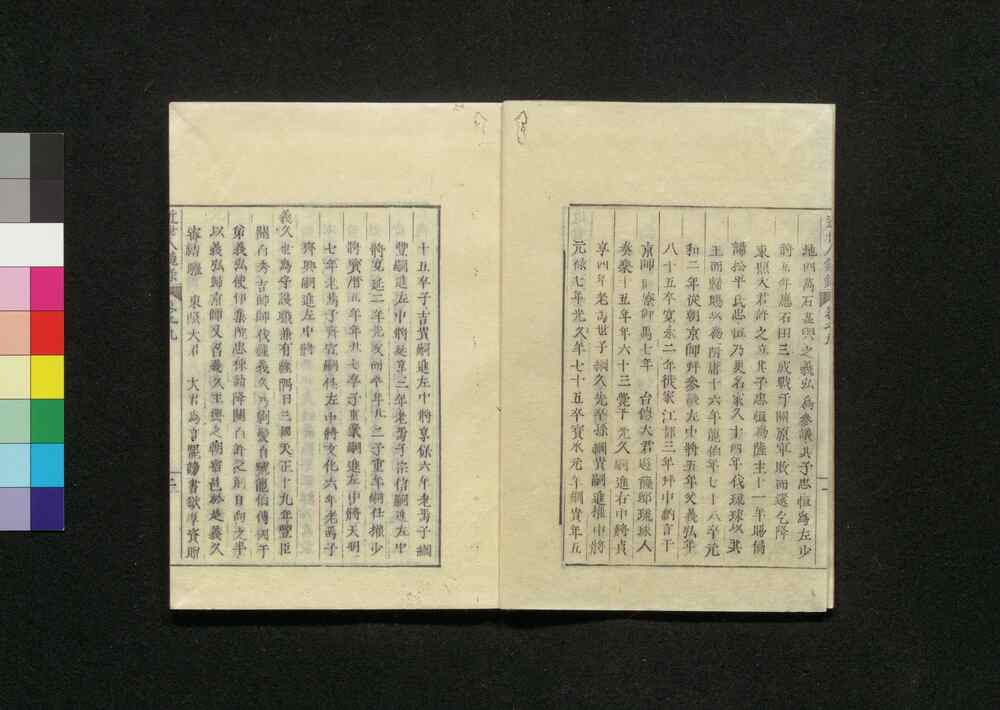 地四萬石孟與之義弘為參議其子忠恒為左少
將五年應石田三成戰于關原軍敗而還乞降
東照大君許之立其子忠恒為薩主十一年賜偏
諱松平氏忠恒乃更名家久十四年伐琉球以其
王而歸賜以為附庸十六年龍伯年七十八卒元
和二年從朝京師拜參議左中將五年父義弘年
八十五卒寬永二年徙家江都三年拜中納言于
京師賜寮御馬七年 台德大君遊薩邸琉球人
奏樂十五年年六十三薨子光久嗣進右中將貞
享四年老為世子綱久先卒孫綱貴嗣進權中將
元祿七年光久年七十五卒寶永元年綱貴年五
十五卒子吉貴嗣進左中將享保六年老焉子繼
豐嗣進左中將延享三年老焉子宗信嗣進左中
將寬延二年先父而卒年二十二子重年嗣仕權少
將寶曆五年年廿七卒子重豪嗣進左中將天明
七年老焉子齊宣嗣仕左中將文化六年老焉子
齊興嗣進左中將
義久也為守護職兼有薩隅日三國天正十九年豐臣
關白秀吉帥師伐薩義久乃剃髮自號龍伯傳國于
弟義弘使伊集院忠棟請降關白許之制自向之半
以義弘歸京師又召義久至與之朝宿邑於是義久
審結驩 東照大君 大君為言聖護書獻厚資賂